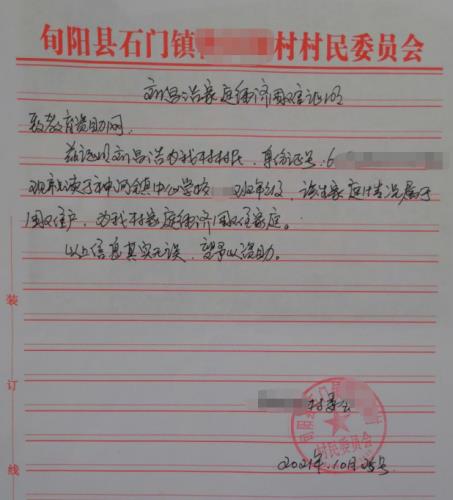 旬阳县石门镇 村村民委员会
刘昌浩家庭经济困难证明
致教育资助网:
兹证明刘昌浩为我村村民,身份证号:6
现就读于神河镇中心学校 班年级,该生家庭情况属于
困难户,为我村家庭经济困难家庭。
以上信息真实无误,望予以资助。
装
订
线
村委会
旬阳县石门镇
村民委员会
2021年10月25号